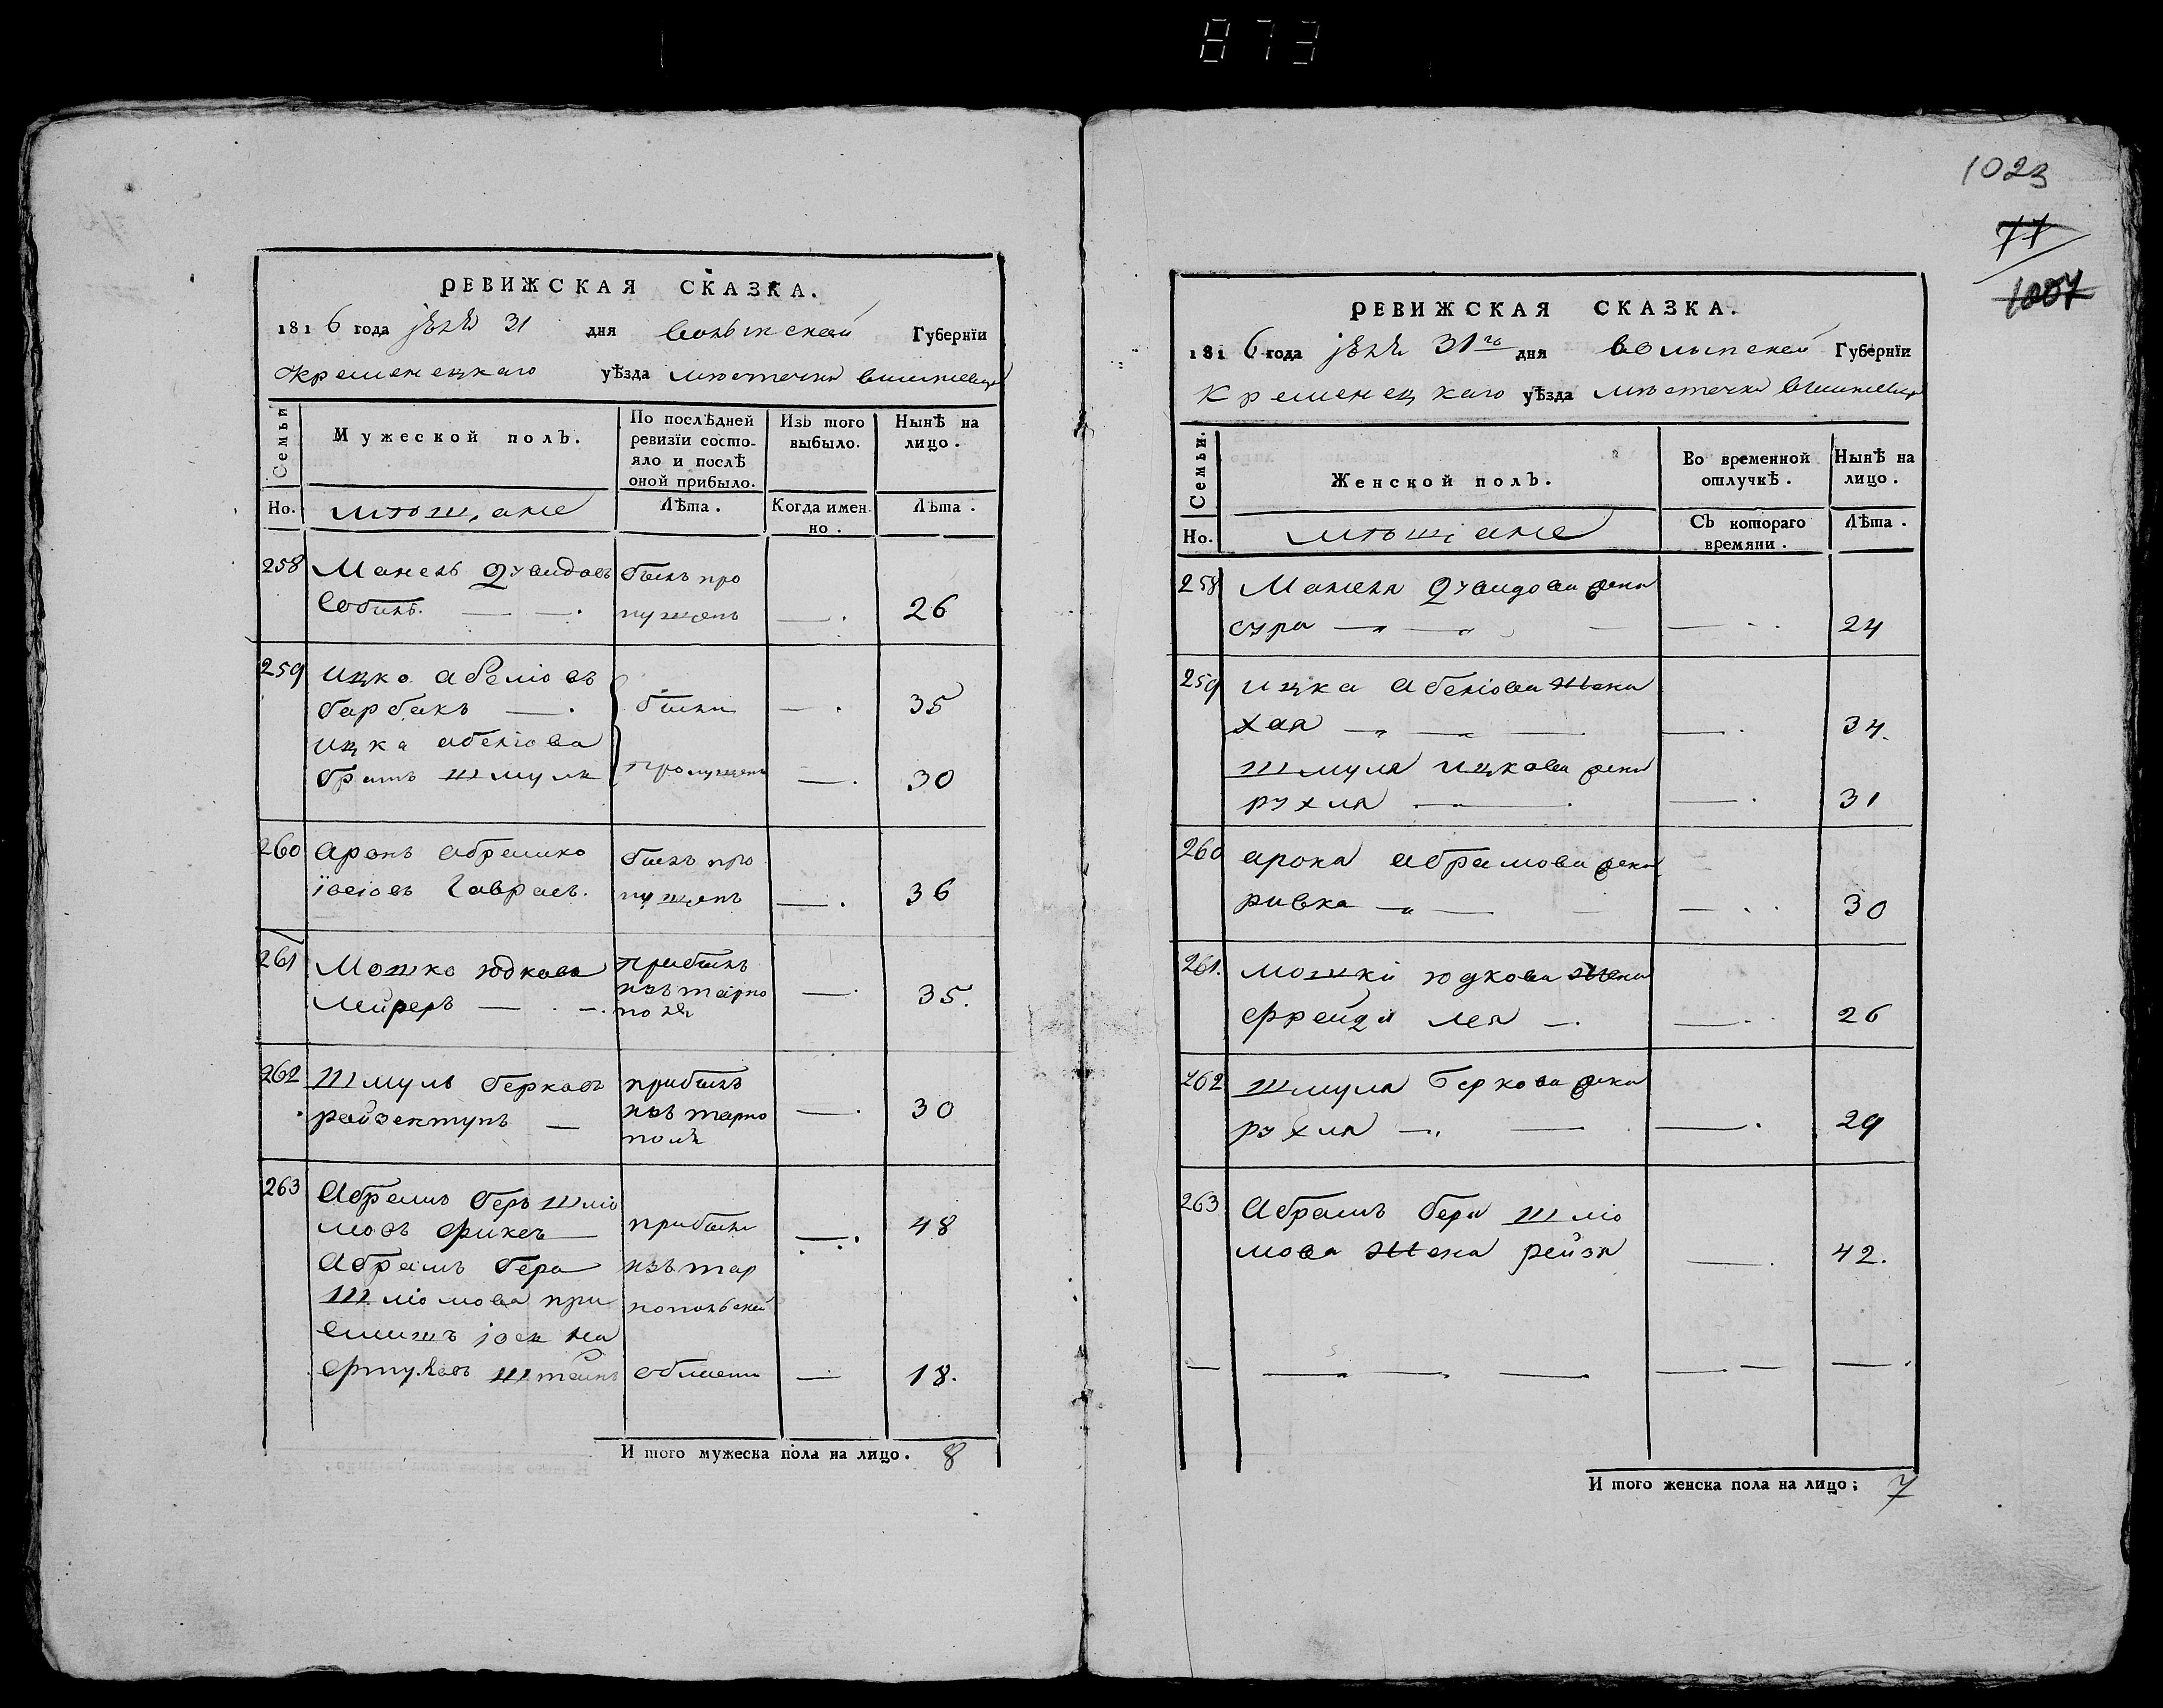 873
РЕВИЖСКАЯ СКАЗКА.
1816 года 31 дня Волынской Губернїи
Кременецкаго уѣзда мѣстечки вишневца
Семьи
Мужеской полъ.
По послѣдней ревизїи состояло и послѣ оной прибыло.
Изъ того выбыло.
Нынѣ на лицо.
Но.
мѣщане
Лѣта.
Когда именно.
Лѣта.
258 Манель Дувидовъ былъ про
пущенъ 26
259 ицко абеліовъ
барбакъ были 35
ицка абеліова
братъ шмуль пропущены 30
260 аронъ абрамко былъ про
іосіовъ пущенъ 36
261 Мошко юдковъ прибылъ
лейреръ изъ тарно
поля 35.
262 шмуль берковъ прибылъ
изъ тарно
поля 30
263 Абрамъ беръ шліо
мовъ фикеъ прибыли 48
Абрамъ бера изъ тар
шліомова при нопольской
емишъ іось на
штейнъ области 18.
И того мужеска пола на лицо. 8
1023
77
1007
РЕВИЖСКАЯ СКАЗКА.
1816 года 31го дня волынской Губернїи
Кременецкаго уѣзда мѣстечки вишневца
Семьи.
Женской полъ.
Во временной отлучкѣ.
Нынѣ на лицо.
Но.
мѣщане
Съ котораго времяни.
Лѣта.
258 Манеля Дувидова жена
сура 24
259 ицка абеліова жена
хая 34.
шмуля ицкова жена
рухля 31
260 арона абрамова жена
ривка 30
261. мошки юдкова жена
фрейда лея 26
262 шмуля беркова жена
рухля 29
263 Абрамъ бера шліо
мова жена рейзя 42.
И того женска пола на лицо; 7